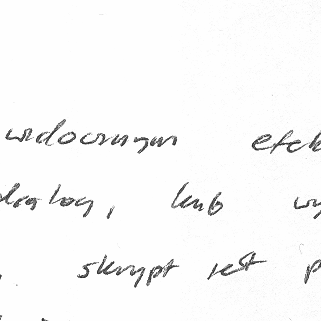 widocznym efek
dialog, lub wy
skrypt jest p